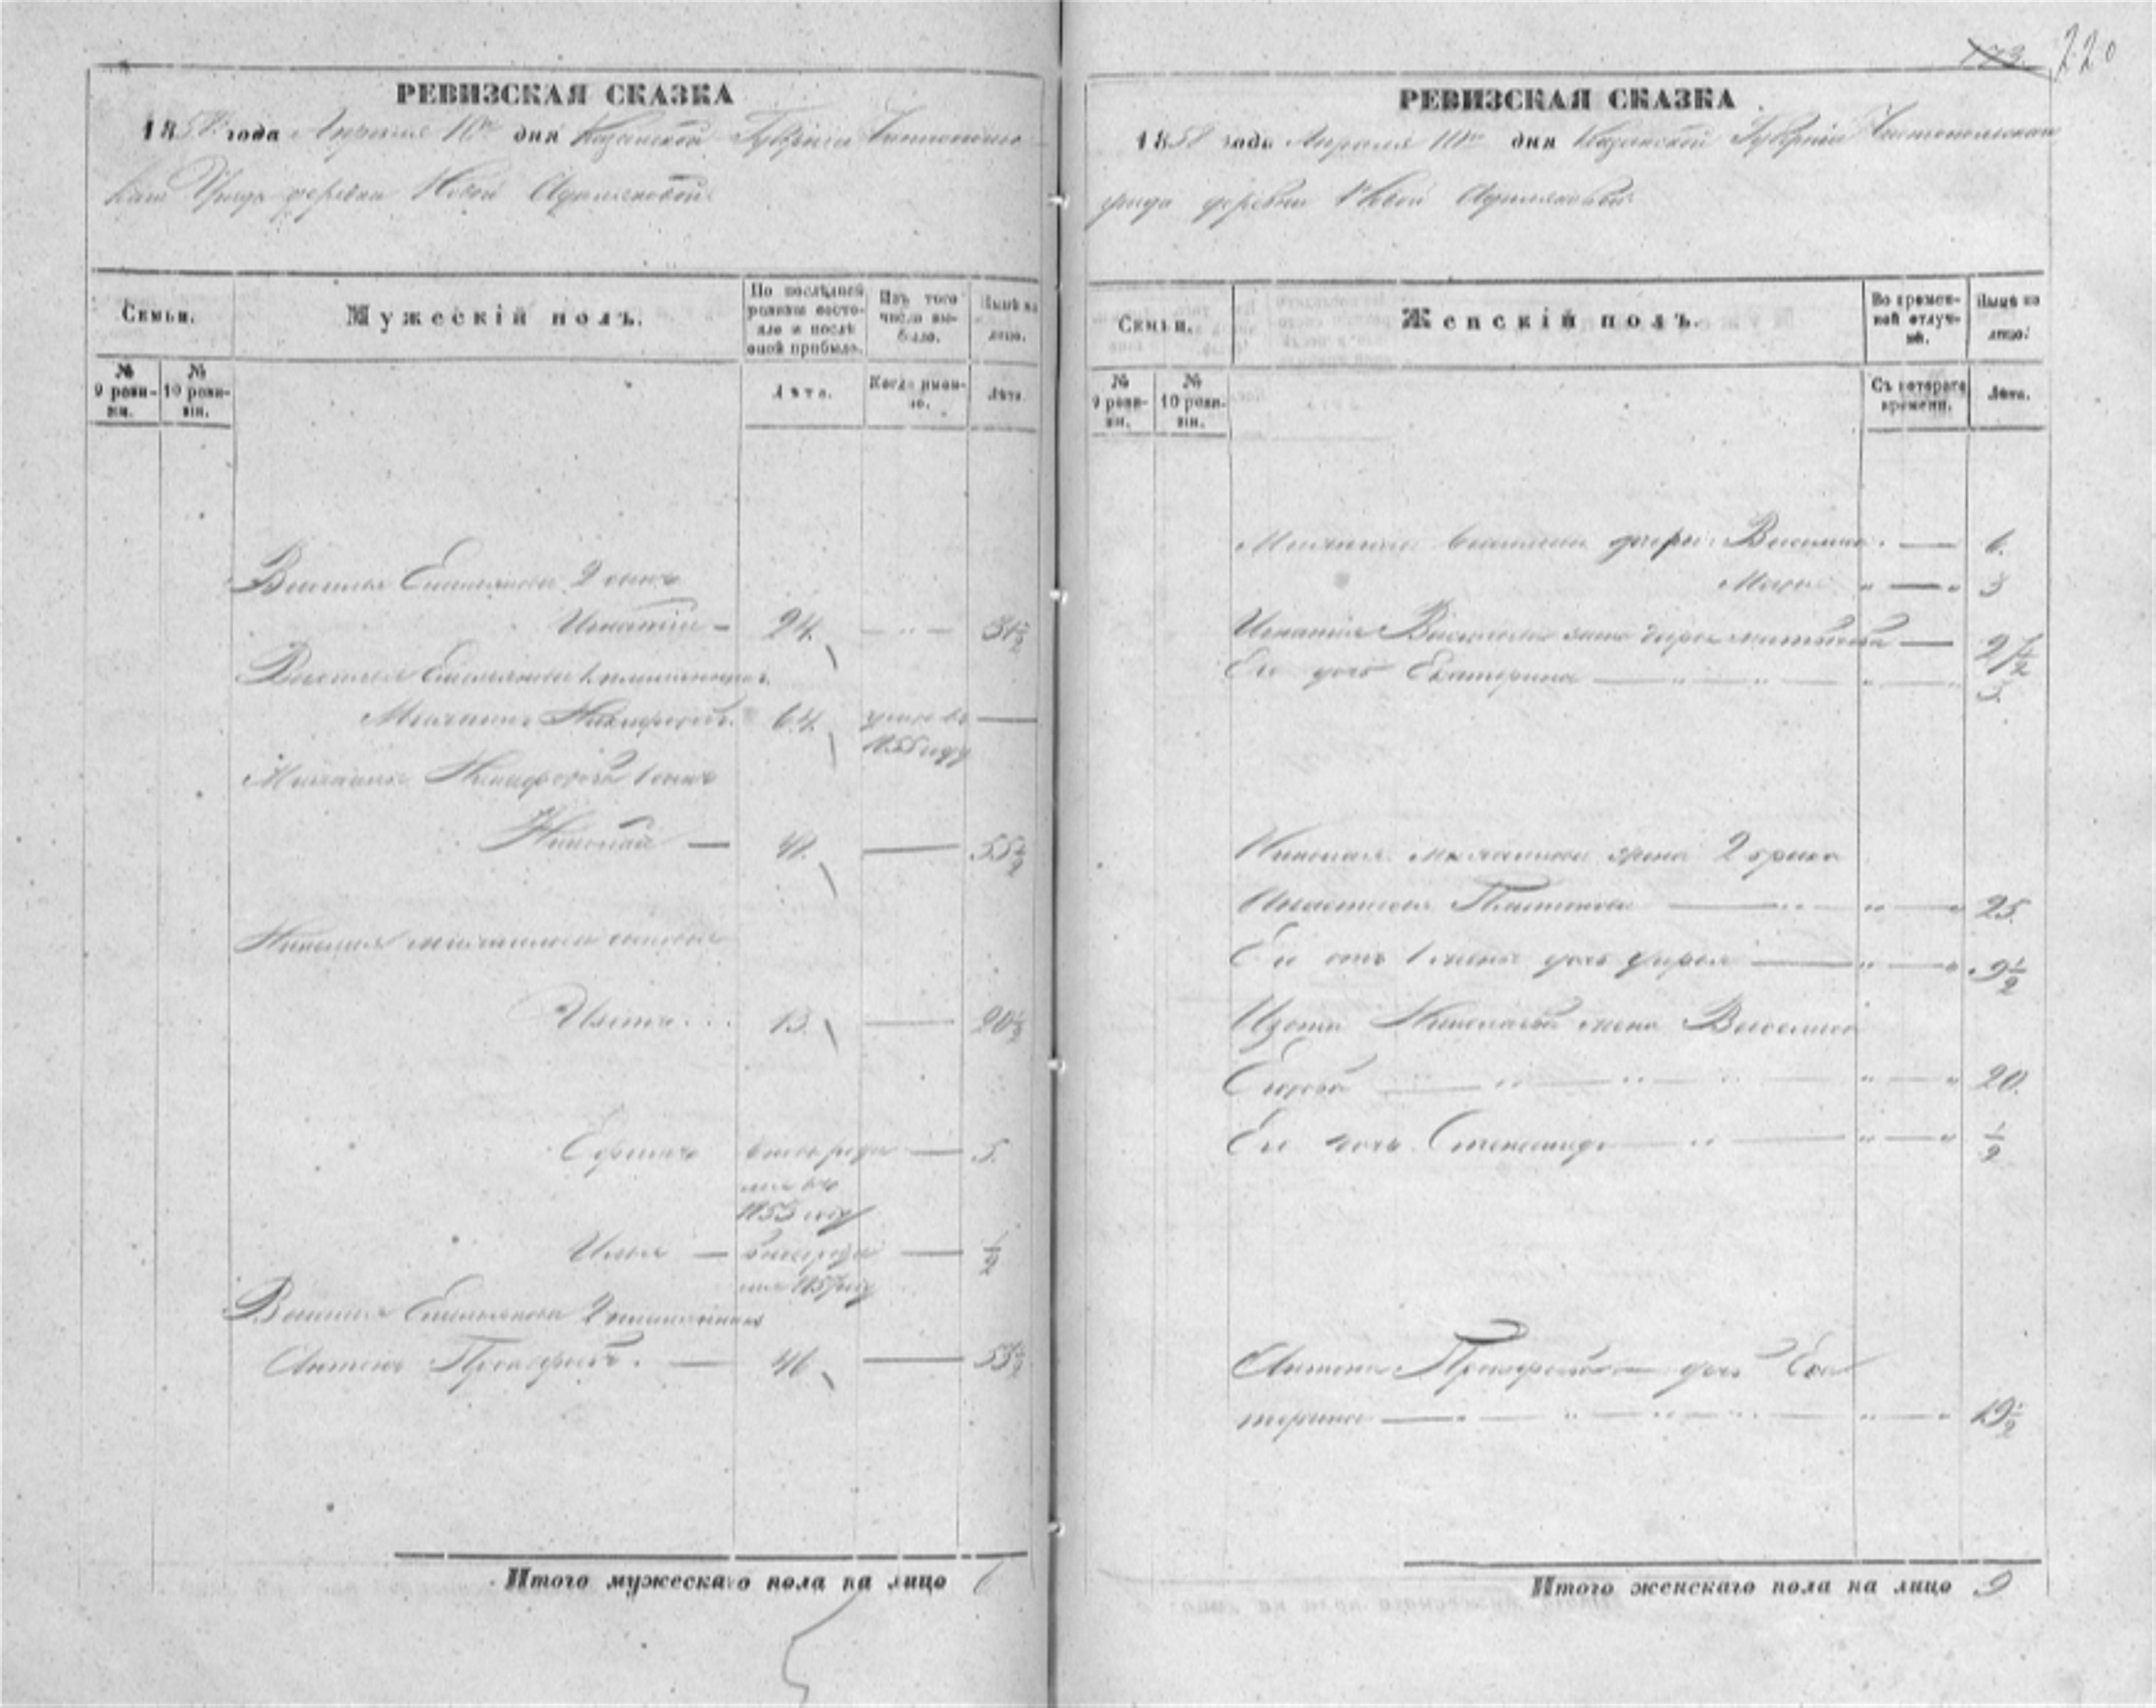 РЕВИЗСКАЯ СКАЗКА
1858 года Апреля 10го дня Казанской Губернии Чистопольс
каго Уезда деревни Новой Адамсковой
Семьи.
Мужескій полъ.
По послѣдней ревизіи состояло и послѣ оной прибыло.
Изъ того числа выбыло.
Нынѣ на лицо.
№ 9 ревизіи.
№ 10 ревизіи.
Лѣта.
Когда именно.
Лѣта.
Василья Емельянова 2 сынъ
Игнатій — 24. — 31½
Василья Емельянова 1 племянникъ
Михаилъ Никифоровъ 64. умеръ въ —
1855 году
Михаила Никифорова 1 сынъ
Николай — 48. — 55½
Николая Михайлова сыновья
Изотъ 13. — 20½
Ефимъ — 5.
1853 году
Илья — ½
1857 году
Василья Емельянова 2 племянникъ
Антонъ Прокофьевъ. — 46 — 53½
Итого мужескаго пола на лицо 6
220
173
РЕВИЗСКАЯ СКАЗКА
1858 года Апреля 10го дня Казанской Губерніи Чистопольскаго
уезда деревни Новой
Семьи.
Женскій полъ.
Во временной отлучкѣ.
Нынѣ на лицо.
№ 9 ревизіи.
№ 10 ревизіи.
Съ котораго времени.
Лѣта.
дочери Василиса — 6.
Марья — 3
Игнатья Васильева жена Дарья Матвеева — 27½
Его дочь Екатерина — 5.
Николая Михайлова жена 2 брака
Анастасья Платонова — 25.
Ея отъ 1 мужа дочь — 9½
Изота Николаева жена Василиса
Егорова — 20.
Его дочь Степанида — ½
Антона Прокофьева дочь Ека
терина — 19½
Итого женскаго пола на лицо 9